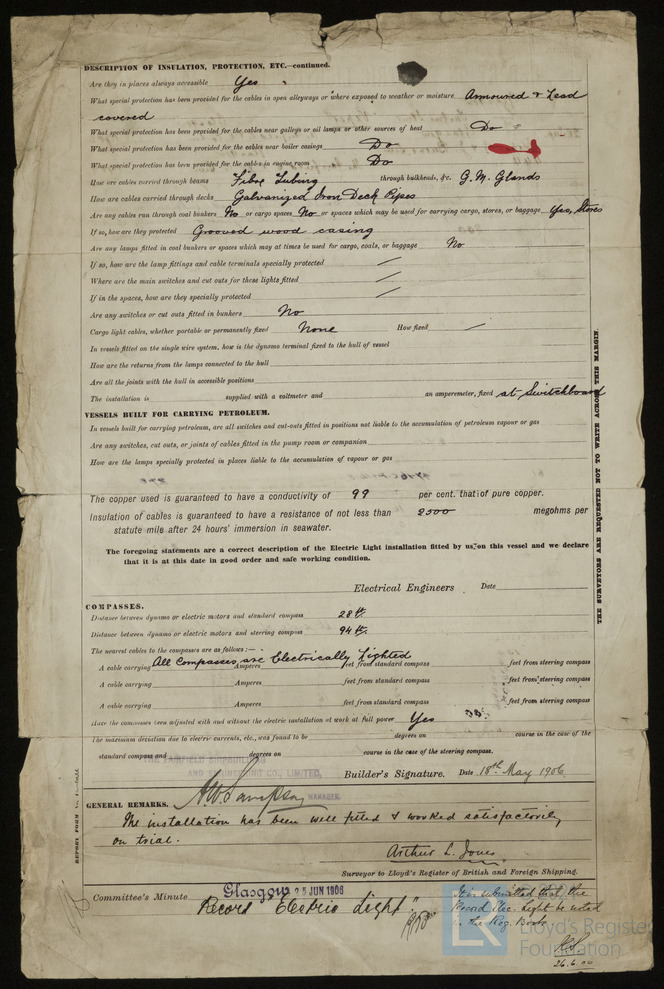 DESCRIPTION OF INSULATION, PROTECTION, ETC.—continued.
Are they in places always accessible Yes
What special protection has been provided for the cables in open alleyways or where exposed to weather or moisture Armoured & Lead
covered
What special protection has been provided for the cables near galleys or oil lamps or other sources of heat Do
What special protection has been provided for the cables near boiler casings Do
What special protection has been provided for the cables in engine room Do
How are cables carried through beams Fibre Tubing through bulkheads, &c. G.M. Glands
How are cables carried through decks Galvanized Iron Deck Pipes
Are any cables run through coal bunkers No or cargo spaces No or spaces which may be used for carrying cargo, stores, or baggage Yes, Stores
If so, how are they protected Grooved wood casing
Are any lamps fitted in coal bunkers or spaces which may at times be used for cargo, coals, or baggage No
If so, how are the lamp fittings and cable terminals specially protected
Where are the main switches and cut outs for these lights fitted
If in the spaces, how are they specially protected
Are any switches or cut outs fitted in bunkers No
Cargo light cables, whether portable or permanently fixed None How fixed
In vessels fitted on the single wire system, how is the dynamo terminal fixed to the hull of vessel
How are the returns from the lamps connected to the hull
Are all the joints with the hull in accessible positions
The installation is supplied with a voltmeter and an amperemeter, fixed at Switchboard
VESSELS BUILT FOR CARRYING PETROLEUM.
In vessels built for carrying petroleum, are all switches and cut-outs fitted in positions not liable to the accumulation of petroleum vapour or gas
Are any switches, cut outs, or joints of cables fitted in the pump room or companion
How are the lamps specially protected in places liable to the accumulation of vapour or gas
The copper used is guaranteed to have a conductivity of 99 per cent. that of pure copper.
Insulation of cables is guaranteed to have a resistance of not less than 2500 megohms per
statute mile after 24 hours' immersion in seawater.
The foregoing statements are a correct description of the Electric Light installation fitted by us on this vessel and we declare
that it is at this date in good order and safe working condition.
Electrical Engineers Date
COMPASSES.
Distance between dynamo or electric motors and standard compass 28 ft.
Distance between dynamo or electric motors and steering compass 94 ft.
The nearest cables to the compasses are as follows:—
All Compasses are Electrically Lighted
A cable carrying Amperes feet from standard compass feet from steering compass
A cable carrying Amperes feet from standard compass feet from steering compass
A cable carrying Amperes feet from standard compass feet from steering compass
Have the compasses been adjusted with and without the electric installation at work at full power Yes
The maximum deviation due to electric currents, etc., was found to be degrees on course in the case of the
standard compass and degrees on course in the case of the steering compass.
THE FAIRFIELD SHIPBUILDING
AND ENGINEERING CO., LIMITED.
Builder's Signature. Date 18th May 1906
MANAGER.
GENERAL REMARKS.
The installation has been well fitted & worked satisfactorily
on trial.
Arthur L. Jones
Surveyor to Lloyd's Register of British and Foreign Shipping.
Committee's Minute Glasgow 25 JUN 1906
Record "Electric Light"
It is submitted that the
Record Elec. Light be noted
in the Reg. Book
26.6.06
THE SURVEYORS ARE REQUESTED NOT TO WRITE ACROSS THIS MARGIN.
LR Lloyd's Register
Foundation